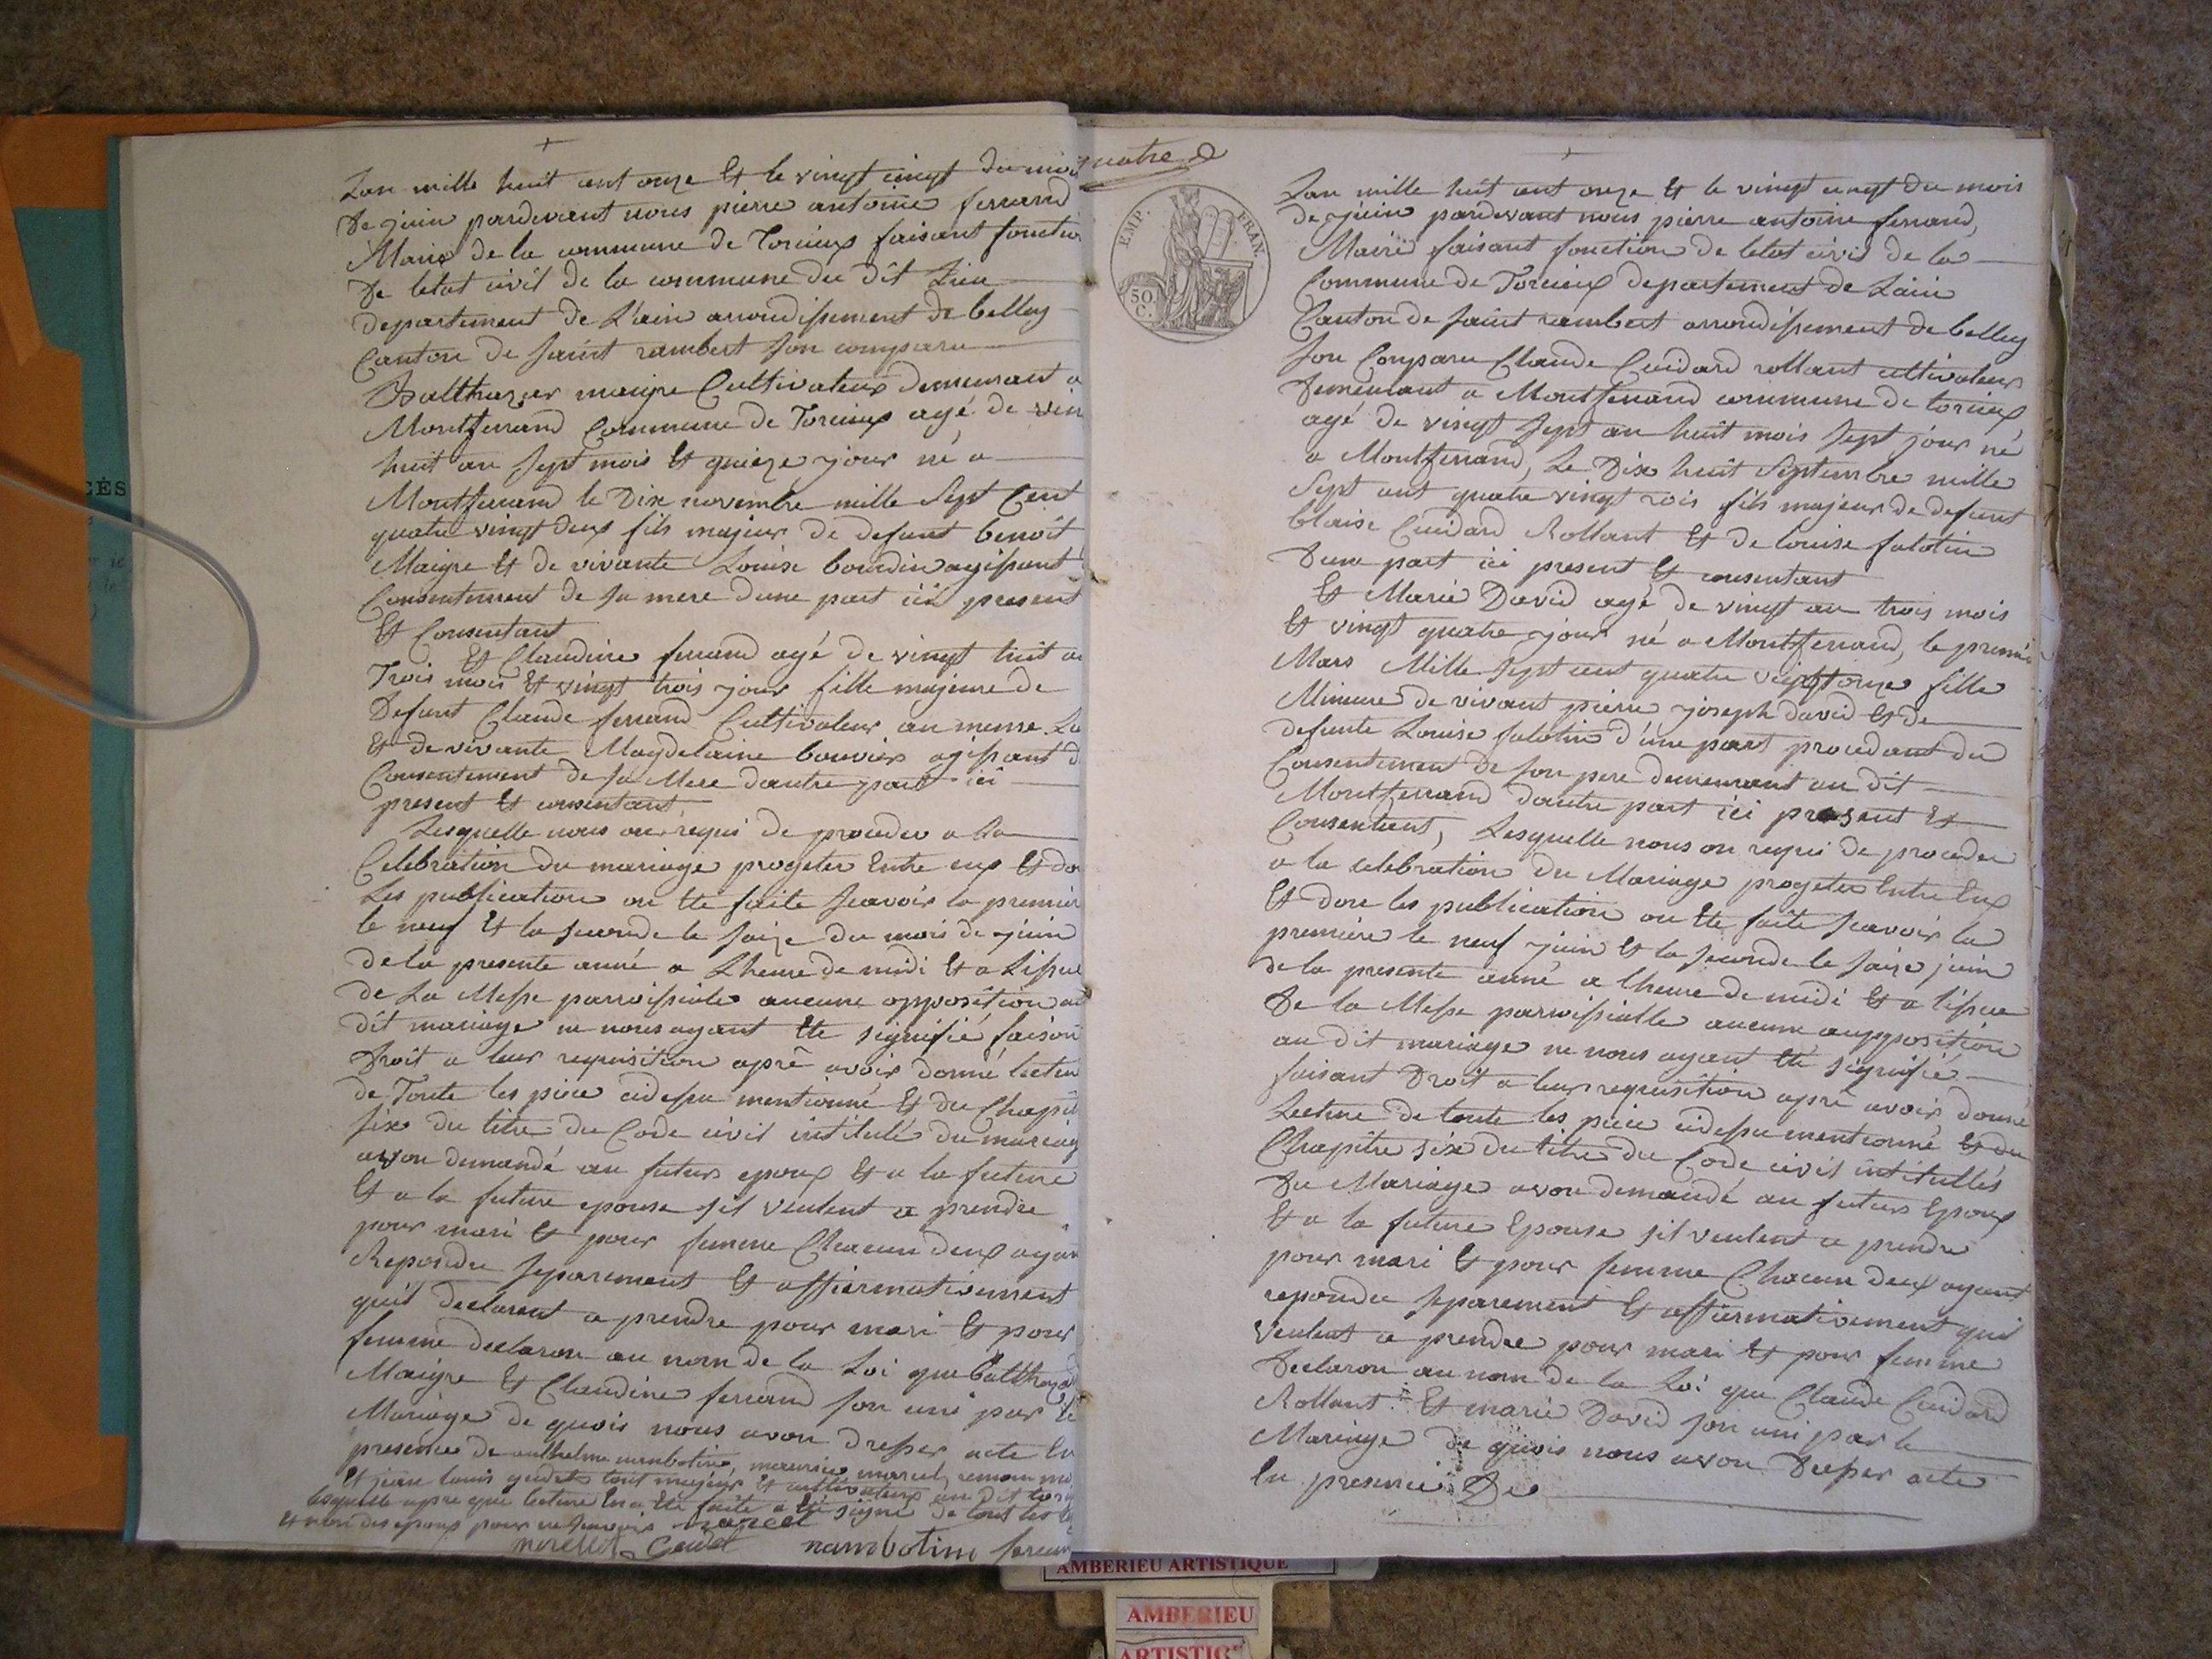 Lan mille huit cent onze Et le vingt cinq du mois
De juin pardevant nous pierre antoine ferrand
Maire de la commune de Torcieux faisant fonction
De letat civil de la commune du dit Lieu
departement de L'ain arrondissement de belley
Canton de saint rambert son comparu
Balthazar maigre Cultivateur demeurant a
Montferrand Commune de Torcieux agé de vin
huit an sept mois Et quinze jour né a
Montferrand le Dix novembre mille Sept Cent
quatre vingt deux fils majeur de defunt benoît
Maigre Et de vivante Louise bourdin agissant
Consentement de sa mere dune part ici present
Et Consentant
Et Claudine ferrand agé de vingt huit an
Trois mois Et vingt trois jour fille majeure de
Defunt Claude ferrand Cultivateur au meme Li
Et de vivante Magdelaine bouvier agissant d
Consentement de sa Mere dautre part ici
present Et consentant
Lesquelle nous on requi de proceder a la
Celebration du mariage progeter Entre eux Et do
Les publication on Ete faite scavoir la premier
le neuf Et la seconde le saize du mois de juin
de la presente anné a Lheure de midi Et a Lissue
de La Messe parroissiale aucune opposition au
dit mariage ne nous ayant Ete signifié faison
Droit a leur requisition aprê avoir donné lectu
de Toute les piece cidessu mentionné Et du Chapit
six du titre du Code civil intitulé du mariag
avon demandé au futur epoux Et a la future
Et a la future epouse sil veulent ce prendre
pour mari Et pour femme Chacun deux ayan
Repondu separement Et affirmativement
quil declarent ce prendre pour mari Et pour
femme declaron au nom de la Loi que balthaza
Maigre Et Claudine ferrand son uni par le
Mariage de quois nous avon dresser acte En
presence de anthelme nambotin, maurice marcel,
Et jean louis gudet tout majeur Et cultivateur au dit tor
lesquelle apre que lecture En a Ete faite a Ete signé de tout les
Et non des epoux pour ne savoir marcel
Gudet nambotin ferran
quatre
EMP. FRAN.
50 C.
Lan mille huit cent onze Et le vingt cinq du mois
de juin pardevant nous pierre antoine ferrand,
Maire faisant fonction de letat civil de la
Commune de Torcieux departement de Lain
Canton de saint rambert arrondissement de belley
son Comparu Claude Cuidard rollant cultivateur
Demeurant a Montferrand commune de torcieux
agé de vingt sept an huit mois sept jour né
a Montferrand, Le Dix huit Septembre mille
Sept cent quatre vingt trois fils majeur de defunt
blaise Cuidard Rollant Et de louise falatin
Dune part ici present Et consentant
Et Marie David agé de vingt an trois mois
Et vingt quatre jour né a Montferrand, le premie
Mars Mille sept cent quatre vingt onze fille
Mineure de vivant pierre joseph david Et de
defunte Louise falatin d'une part procedant du
Consentement de son pere demeurant au dit
Montferrand dautre part ici present Et
Consentant, Lesquelle nous on requi de proceder
a la celebration du Mariage progeter Entre Eux
Et dont les publication on Ete faite scavoir la
premiere le neuf juin Et la seconde le saize juin
de la presente anné a lheure de midi Et a lissue
De la Messe parroissialle aucune aupposition
au dit mariage ne nous ayant Ete signifié
faisant Droit a leur requisition aprê avoir donné
Lecture de toute les piece cidessu mentionné Et du
Chapitre six du titre du Code civil intitullés
Du Mariage avon demandé au futur Epoux
Et a la future Epouse sil veulent ce prendre
pour mari Et pour femme Chacun deux ayant
repondu separement Et affirmativement quil
Veulent ce prendre pour mari Et pour femme
Declaron au nom de la Loi que Claude Cuidard
Rollant Et marie David son uni par le
Mariage de quois nous avon Dresser acte
En presence De
CÈS
AMBERIEU ARTISTIQUE
AMBERIEU
ARTISTIQ